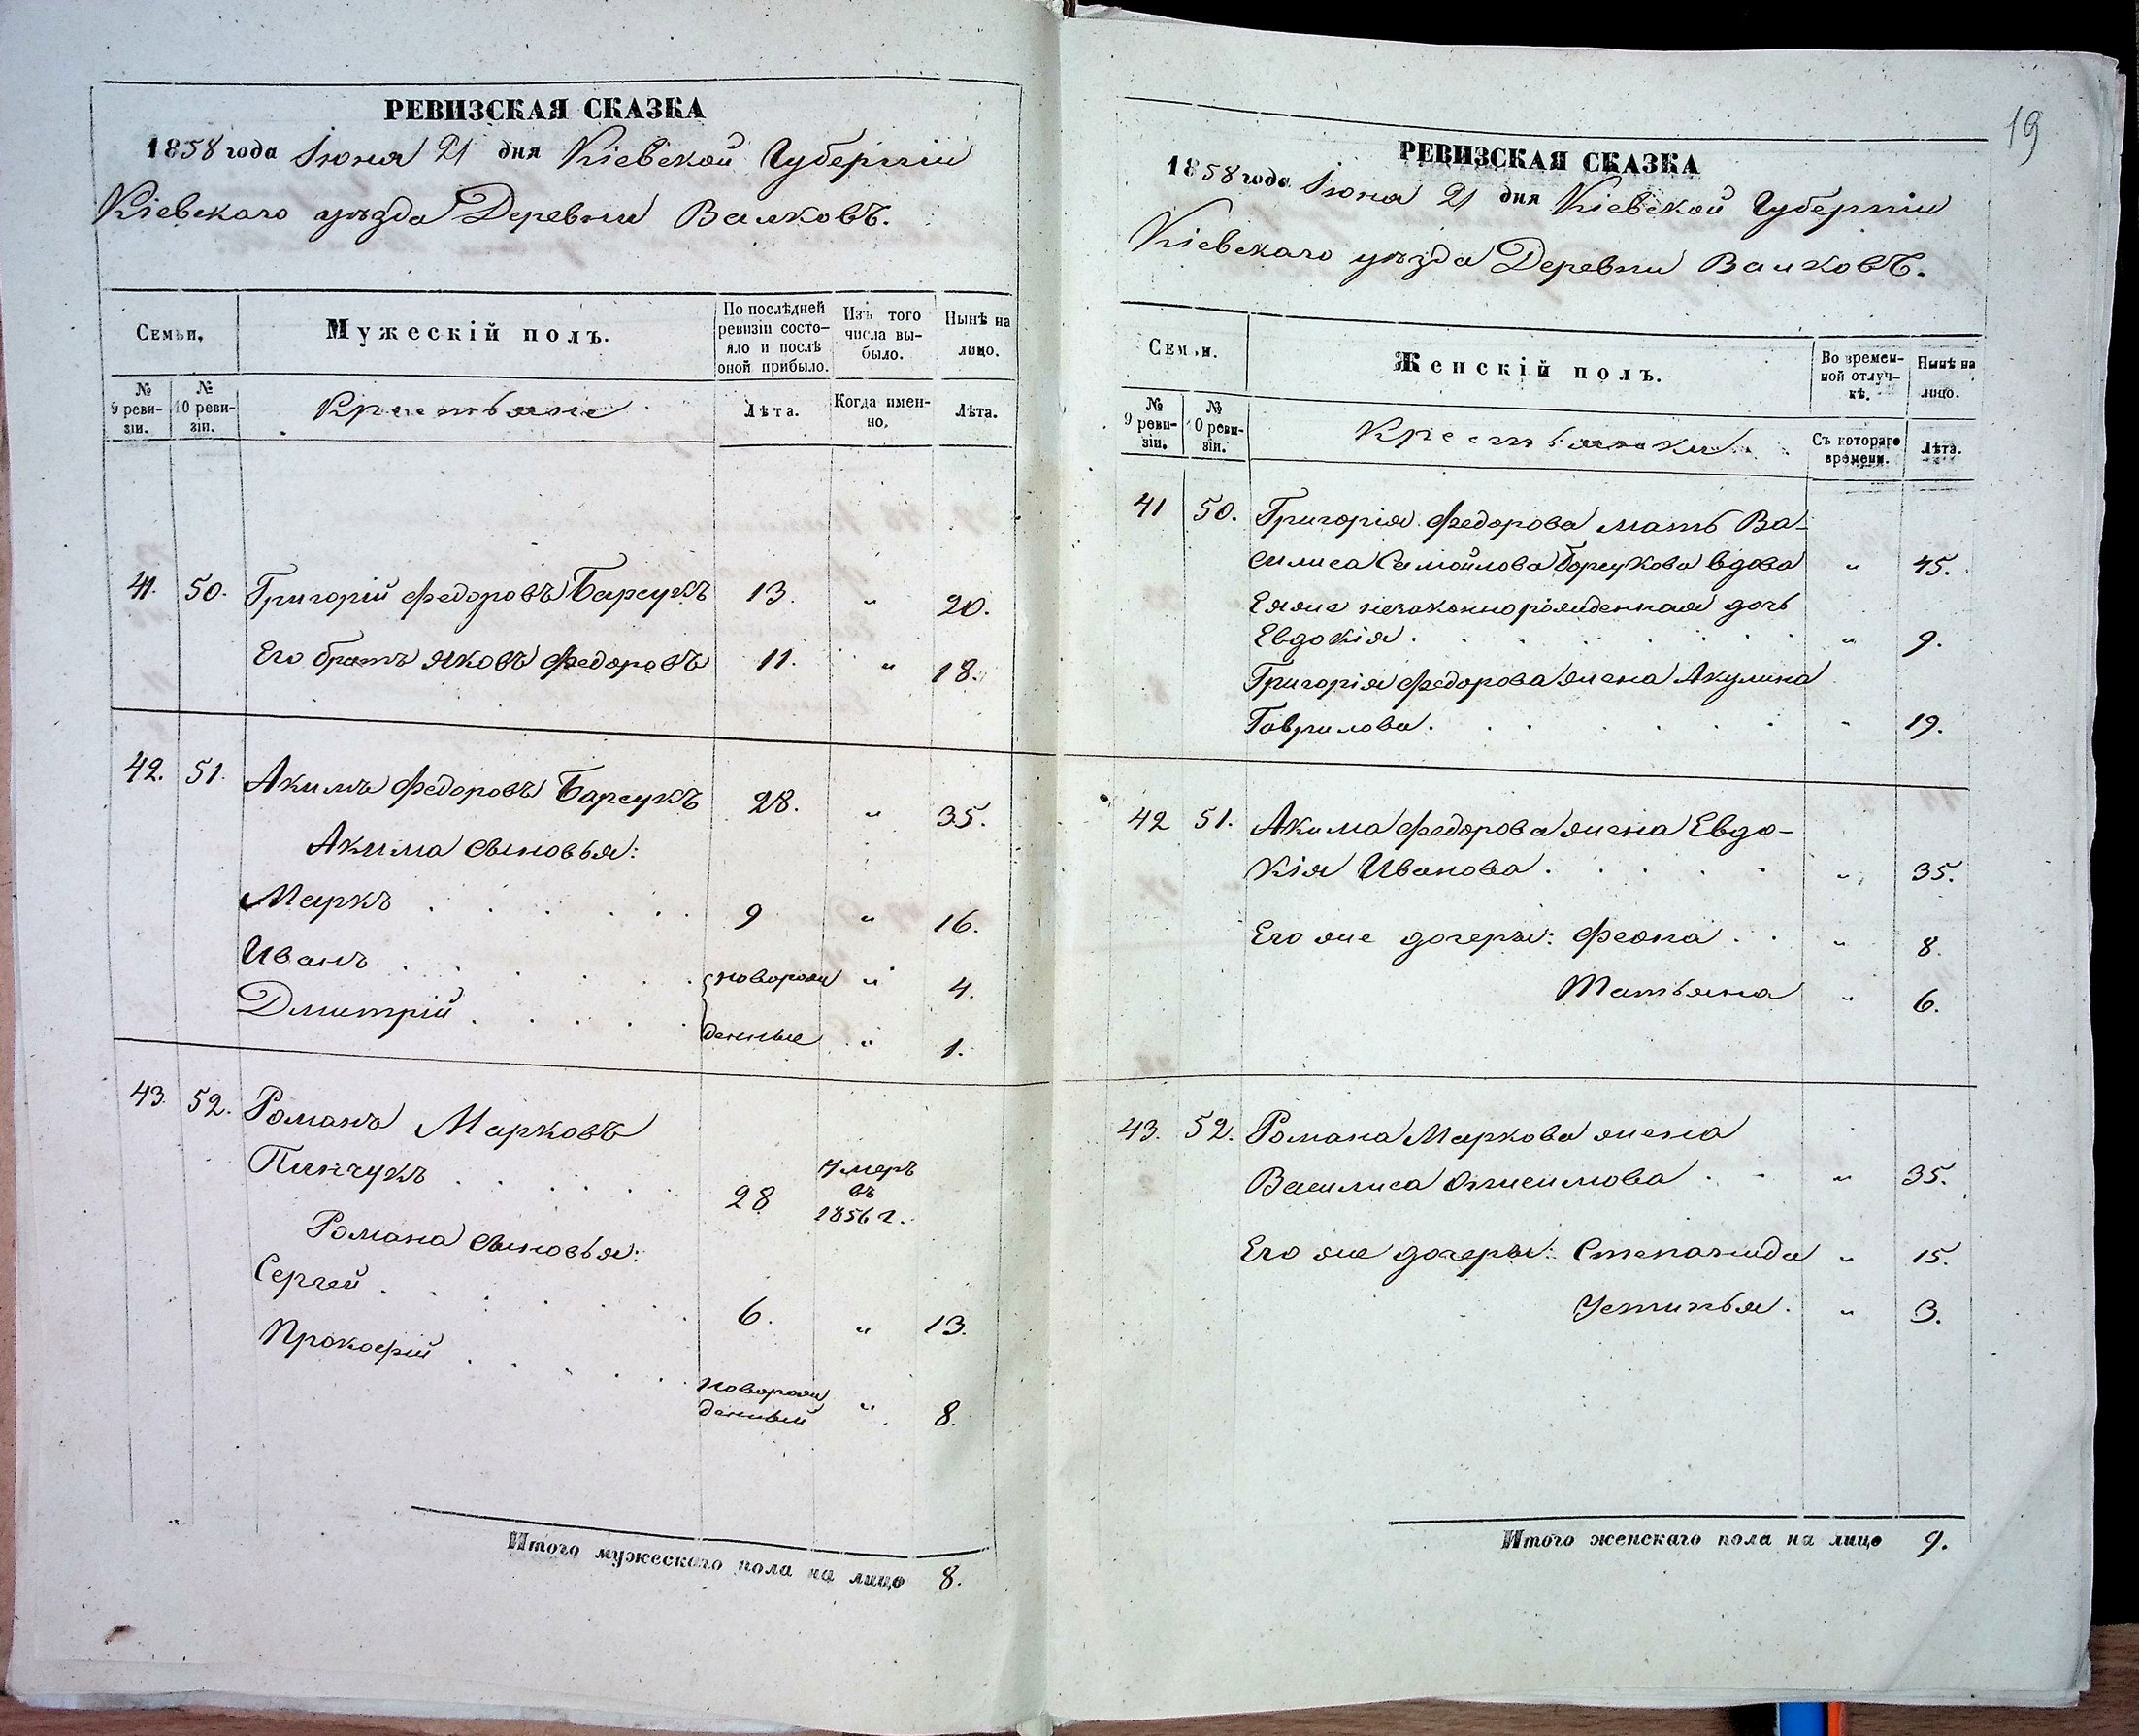 РЕВИЗСКАЯ СКАЗКА
1858 года Іюня 21 дня Кіевской Губерніи
Кіевскаго уѣзда Деревни Валковъ.
Семьи.
Мужескій полъ.
По послѣдней ревизіи состояло и послѣ оной прибыло.
Изъ того числа выбыло.
Нынѣ на лицо.
№ 9 ревизіи.
№ 10 ревизіи.
Крестьяне
Лѣта.
Когда именно.
Лѣта.
41. 50. Григорій Федоровъ Барсукъ 13. " 20.
Его братъ Яковъ Федоровъ 11. " 18.
42. 51. Акимъ Федоровъ Барсукъ 28. " 35.
Акима сыновья:
Маркъ 9 " 16.
Иванъ новорож " 4.
Дмитрій денные " 1.
43. 52. Романъ Марковъ
Пинчукъ 28 Умеръ въ 1856 г.
Романа сыновья:
Сергей 6. " 13.
Прокофій новорож денный " 8.
Итого мужескаго пола на лицо 8.
19
РЕВИЗСКАЯ СКАЗКА
1858 года Іюня 21 дня Кіевской Губерніи
Кіевскаго уѣзда Деревни Валковъ.
Семьи.
Женскій полъ.
Во временной отлучкѣ.
Нынѣ на лицо.
№ 9 ревизіи.
№ 10 ревизіи.
Крестьянки
Съ котораго времени.
Лѣта.
41 50. Григорія Федорова мать Ва-
силиса Самойлова Борсукова вдова " 45.
Ея же незаконнорожденная дочь
Евдокія " 9.
Григорія Федорова жена Акулина
Гаврилова " 19.
42 51. Акима Федорова жена Евдо-
кія Иванова " 35.
Его же дочери: Феона " 8.
Татьяна " 6.
43. 52. Романа Маркова жена
Василиса Онисимова " 35.
Его же дочери: Степанида " 15.
Устинья " 3.
Итого женскаго пола на лицо 9.